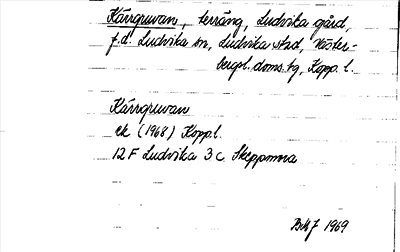 Kärrgruvan, terräng, Ludvika gård,
f.d. Ludvika sn, Ludvika stad, Väster-
bergsl. doms.hg, Kopp. l.
Kärrgruvan
ek (1968) Kopp.l.
12 F Ludvika 3 c Skeppmora
1969